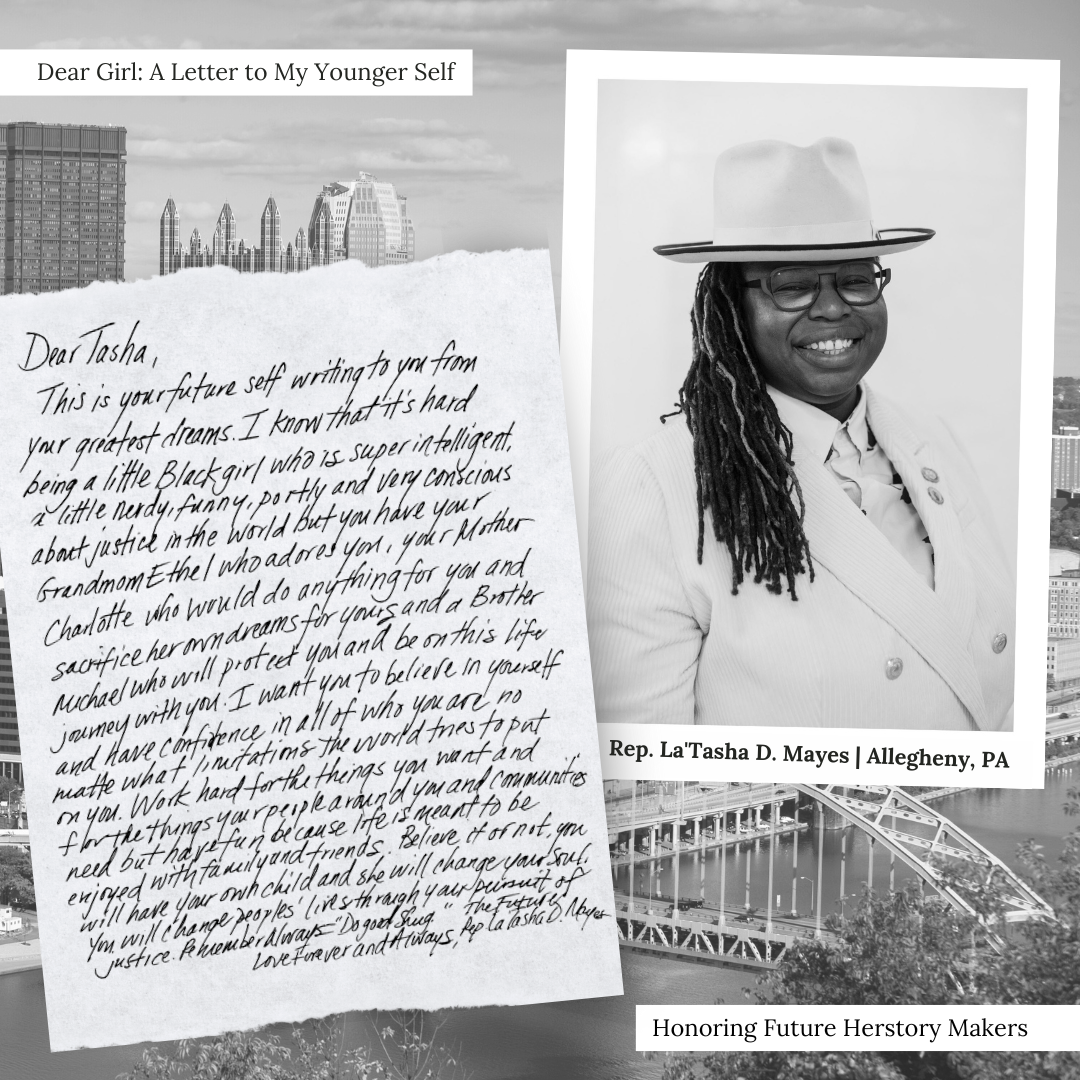 Dear Girl: A Letter to My Younger Self
Dear Tasha,
This is your future self writing to you from
your greatest dreams. I know that it's hard
being a little Black girl who is super intelligent,
a little nerdy, funny, portly and very conscious
about justice in the world but you have your
Grandmom Ethel who adores you, your Mother
Charlotte who would do anything for you and
sacrifice her own dreams for yours and a Brother
Michael who will protect you and be on this life
journey with you. I want you to believe in yourself
and have confidence in all of who you are no
matte what limitations the world tries to put
on you. Work hard for the things you want and
for the things your people around you and communities
need but have fun because life is meant to be
enjoyed with family and friends. Believe it or not, you
will have your own child and she will change your soul.
You will change peoples' lives through your pursuit of
justice. Remember Always "Do good Shug." The Future
Love Forever and Always, Rep La'Tasha D. Mayes
Rep. La'Tasha D. Mayes | Allegheny, PA
Honoring Future Herstory Makers